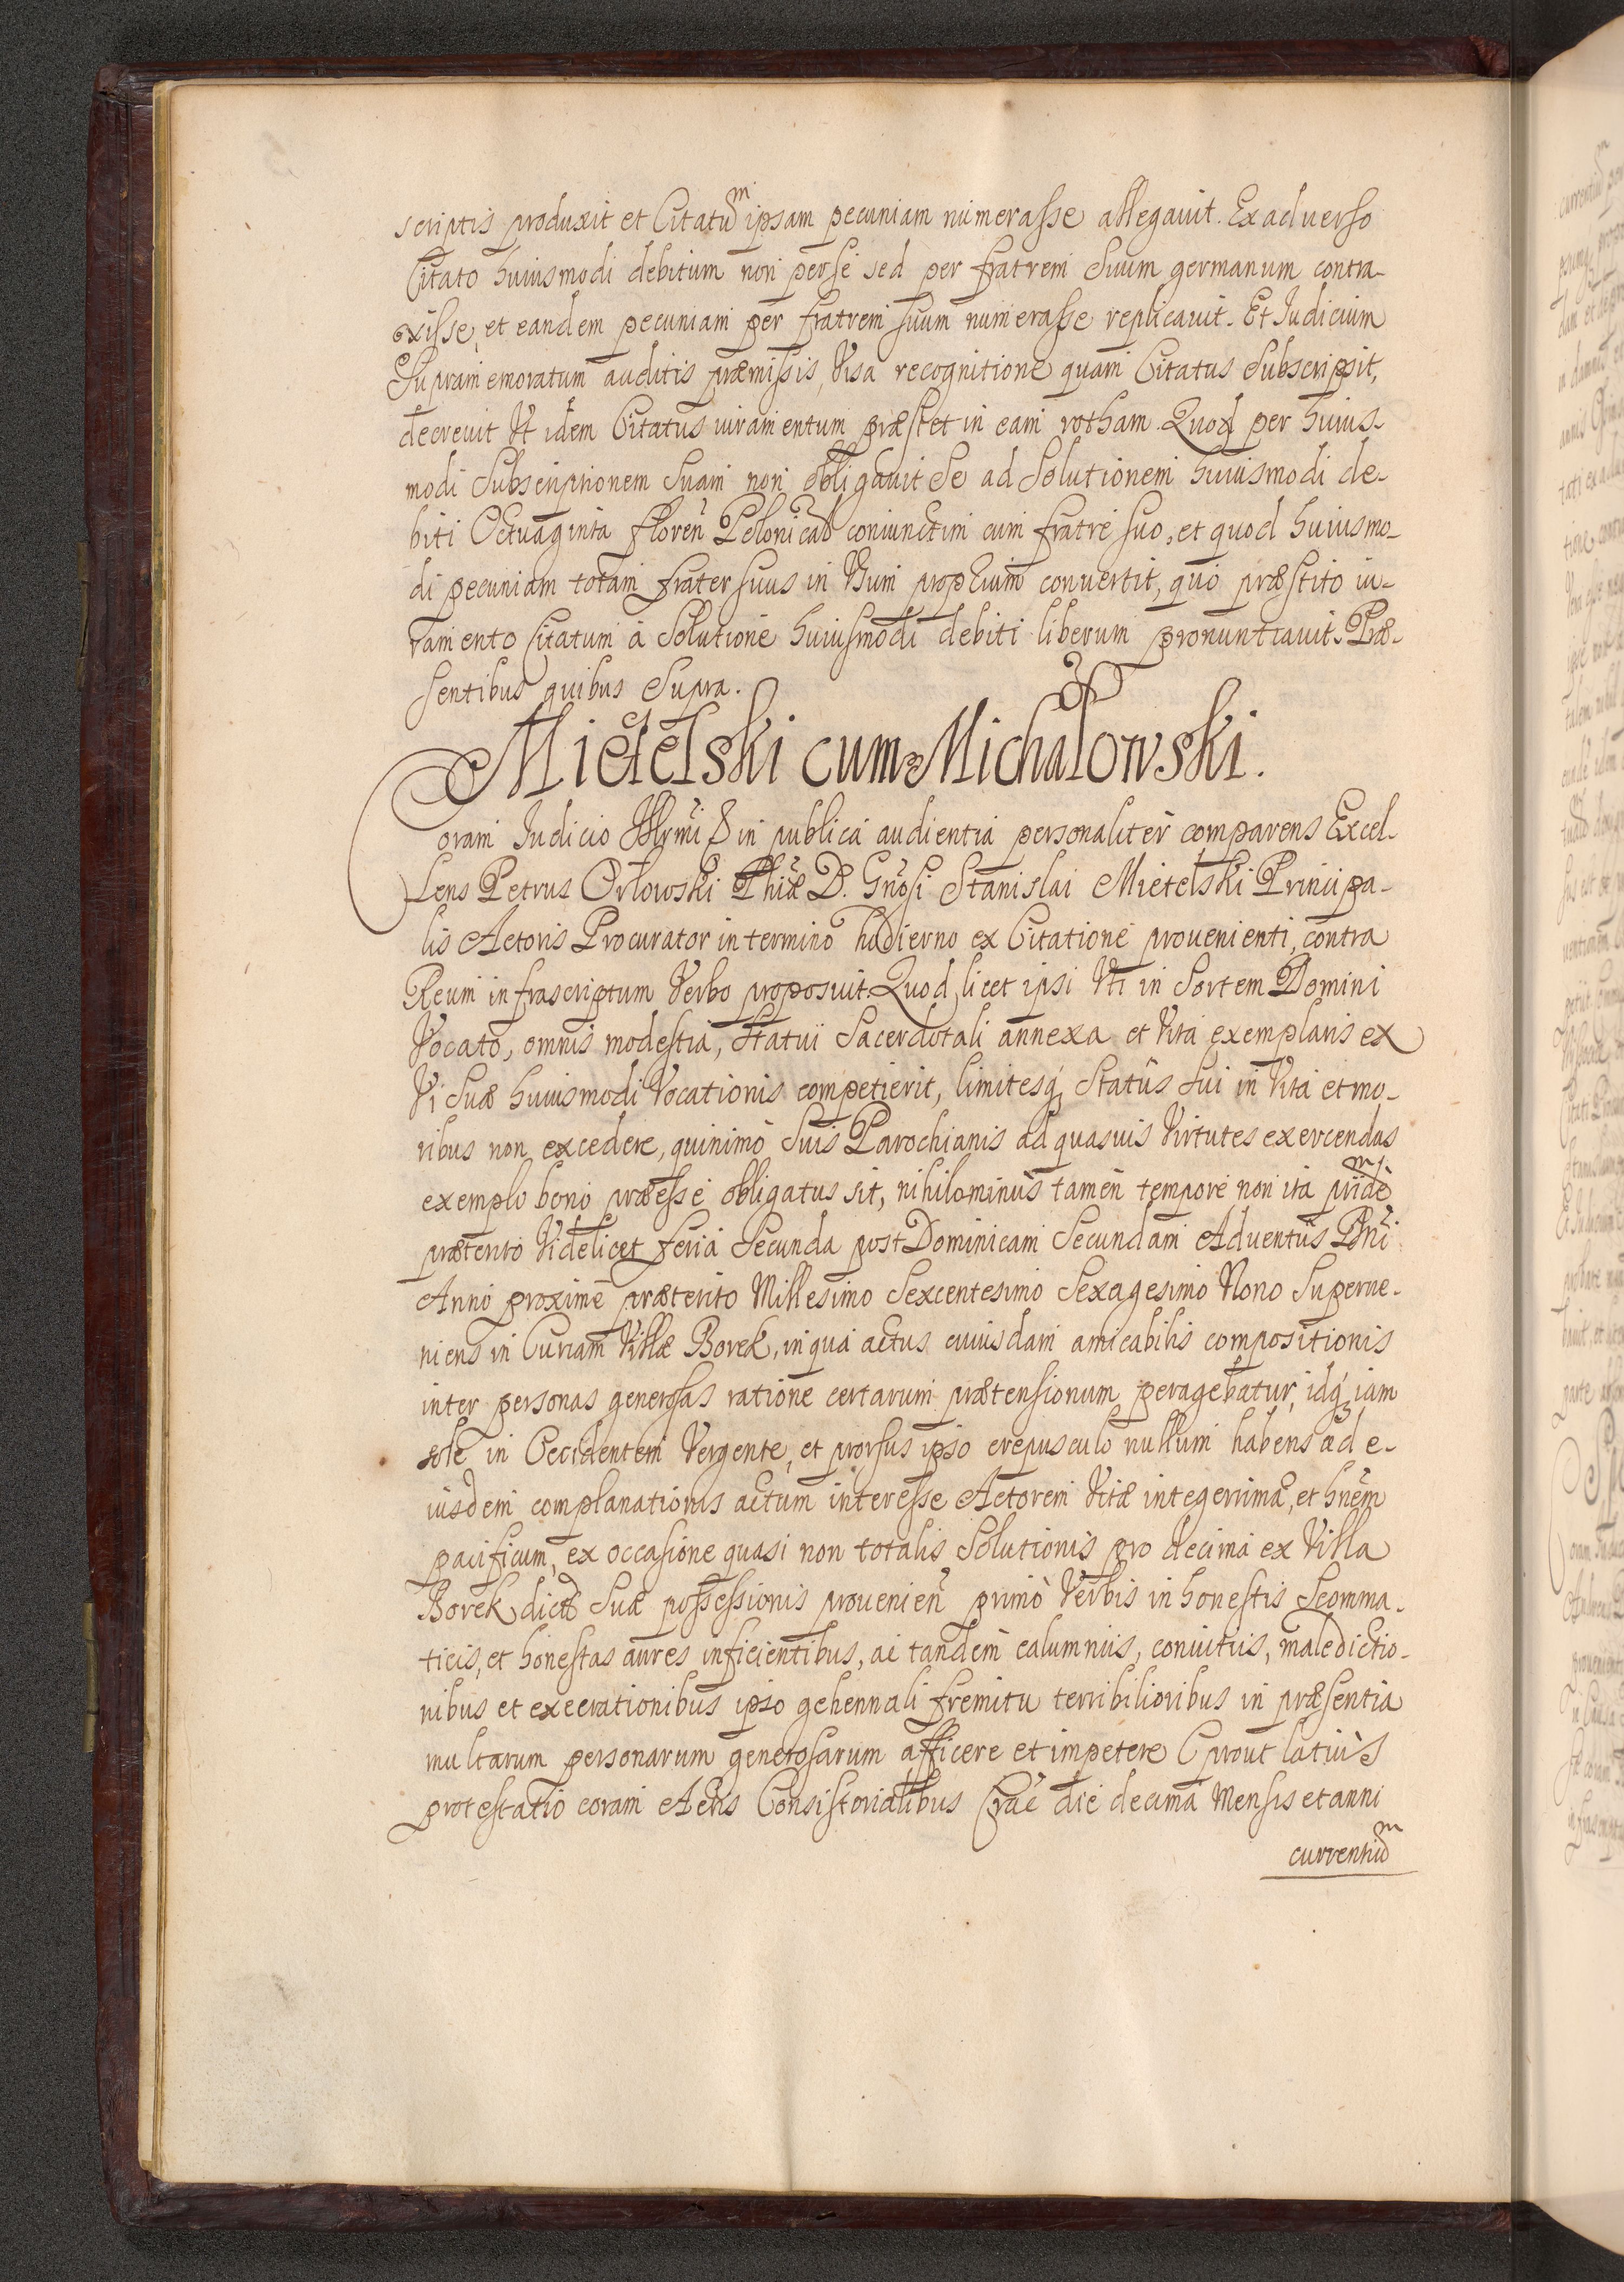 scriptis produxit et Citatũ ipsam pecuniam numerasse allegauit. Ex aduerso
Citato huiusmodi debitum non per se sed per fratrem Suum germanum contra-
xisse, et eandem pecuniam per fratrem suum numerasse replicauit. Et Iudicium
Supramemoratum auditis præmissis, Visa recognitione quam Citatus Subscripsit,
decreuit Vt idem Citatus iuramentum præstet in eam rotham. Quod per huius-
modi Subscriptionem Suam non obligauit Se ad Solutionem huiusmodi de-
biti Octuaginta floren̄ Polonical coniunctim cum fratre suo, et quod huiusmo-
di pecuniam totam frater suus in Vsum proprium conuertit, quo præstito iu-
ramento Citatum à Solutione huiusmodi debiti liberum pronuntiauit. Præ-
sentibus quibus Supra.
Mietelski cum Michałowski.
Coram Iudicio Illrmi & in publica audientia personaliter comparens Excel-
lens Petrus Orłowski Phiæ D. Gn̄osi Stanislai Mietelski Principa-
lis Actoris Procurator in termino hodierno ex Citatione prouenienti, contra
Reum infrascriptum Verbo proposuit. Quod licet ipsi Vti in Sortem Domini
Vocato, omnis modestia, Statui Sacerdotali annexa et Vita exemplaris ex
Vi Suæ huiusmodi Vocationis competierit, limitesq́ Status Sui in Vita et mo-
ribus non excedere, quinimo Suis Parochianis ad quasuis Virtutes exercendas
exemplo bono præesse obligatus sit, nihilominus tamen tempore non ita pridẽ
præterito Videlicet feria Secunda post Dominicam Secundam Aduentus Dn̄i
Anno proxime præterito Millesimo Sexcentesimo Sexagesimo Nono Superue-
niens in Curiam Villæ Borek, in qua actus cuiusdam amicabilis compositionis
inter personas generosas ratione certarum prætensionum peragebatur, idq́ iam
sole in Occidentem Vergente, et prorsus ipso crepusculo nullum habens ad e-
iusdem complanationis actum interesse Actorem Vitæ integerrimæ, et hn̄em
pacificum, ex occasione quasi non totalis Solutionis pro decima ex Villa
Borek dictæ Suæ possessionis prouenien̄ primò Verbis inhonestis Scomma-
ticis, et honestas aures inficientibus, ac tandem calumniis, conuitiis, maledictio-
nibus et execrationibus ipso gehennali fremitu terribilioribus in præsentia
multarum personarum generosarum afficere et impetere (prout latius
protestatio coram Actis Consistorialibus Crac̄ die decima Mensis et anni
currentiũ